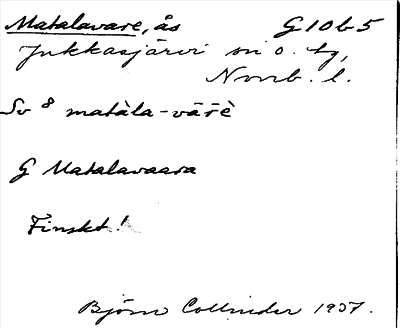 Matalavare, ås G10b5
Jukkasjärvi sn o. tg,
Norrb. l.
Sv 8 matàla-vār̄è
G Matalavaara
Finskt!
Björn Collinder 1937.